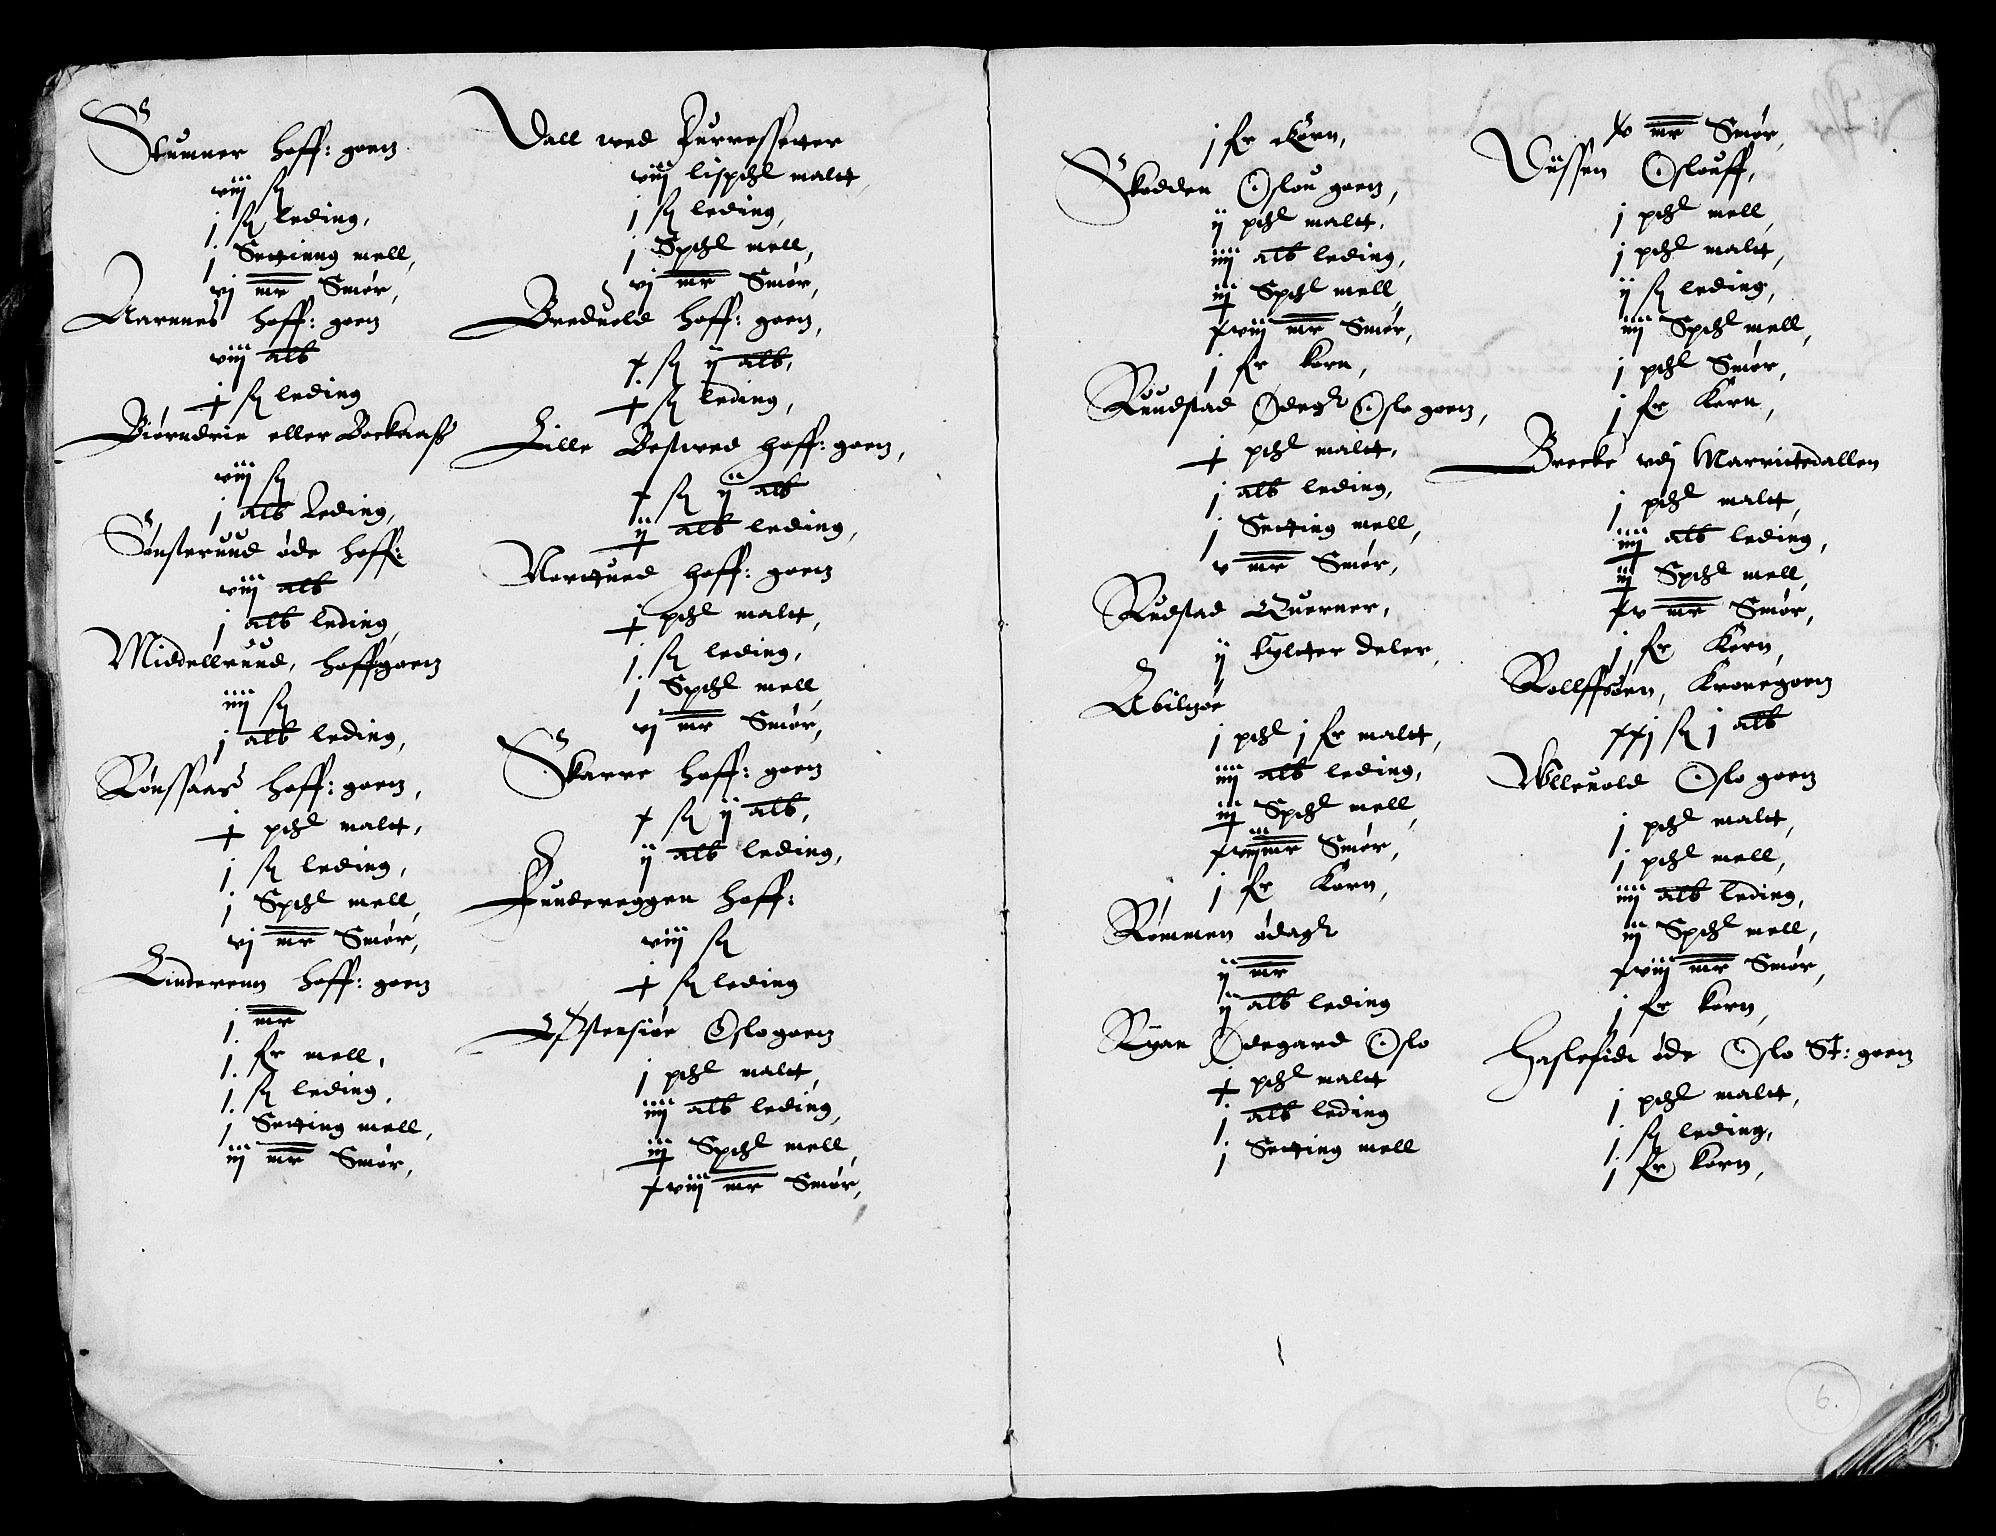 Stumner hoff: goen
viij sz
j sz leding,
j Settinng mell,
vj mr Smør,
Aarnnes hoff: goen
viij alb
j sz leding
Biørndrie eller Bockaass
viij sz
j alb Leding,
Sønsterund øde hoff:
viij alb
j alb leding,
Middellrund, hoffgoen
iiij sz
j alb leding,
Rønssaas hoff: goen,
j pdl malt,
j sz leding,
j Spdl mell,
vj mr Smør,
Linderenn hoff: goen
j mr
j fr mell,
j sz leding,
j Setting mell,
iij mr Smør,
Vall wed Furressetter
viij lispdl malt,
j sz leding,
j Spdl mell,
vj mr Smør,
Breduold hoff: goen,
x sz ij alb,
j sz leding,
Lille Bestwed hoff: goen,
x sz ij alb
ij alb leding,
Nortued hoff: goen
j pdl malt,
j sz leding,
j Spdl mell
vj mr Smør,
Skarre hoff: goen
x sz ij alb,
ij alb leding,
Fundereggen hoff:
viij sz
j sz leding
Østensiøe Oslogoen
j pdl malt,
iiij alb leding,
iij Spdl mell,
xviij mr Smør,
j fr Korn,
Skodden Oslou goen,
ij pdl malt,
iiij alb leding,
iij Spdl mell,
xviij mr Smør,
j fr korn,
Rundstad Ødegr Oslo goen,
j pdl malt,
j alb leding,
j Setting mell,
v mr Smør,
Rudstad Querner,
ij tylter deler,
Abilsøe
j pdl j fr malt,
iiij alb leding,
iij Spdl mell,
xviij mr Smør,
j fr Korn,
Rømmen ødegr
ij mr
ij alb leding
Ryan Ødegard Oslo
j pdl malt
j alb leding
j Setting mell
xv mr Smør,
Viissen Oslouff,
j pdl mell,
j pdl malt,
ij sz leding,
iiij Spdl mell,
j pdl Smør,
j fr Korn,
Brecke vdj Marriitedallen
j pdl malt,
iiij alb leding,
iij Spdl mell,
xv mr Smør,
j fr Korn,
Rollffsøen, Kronegoen
xxj sz j alb
Ulleuold Oslo goen
j pdl malt,
j pdl mell,
iiij alb leding,
iij Spdl mell,
xviij mr Smør,
j fr korn,
Haslefidt øde Oslo St: goen
j pdl malt,
j sz leding,
j fr korn,
6.